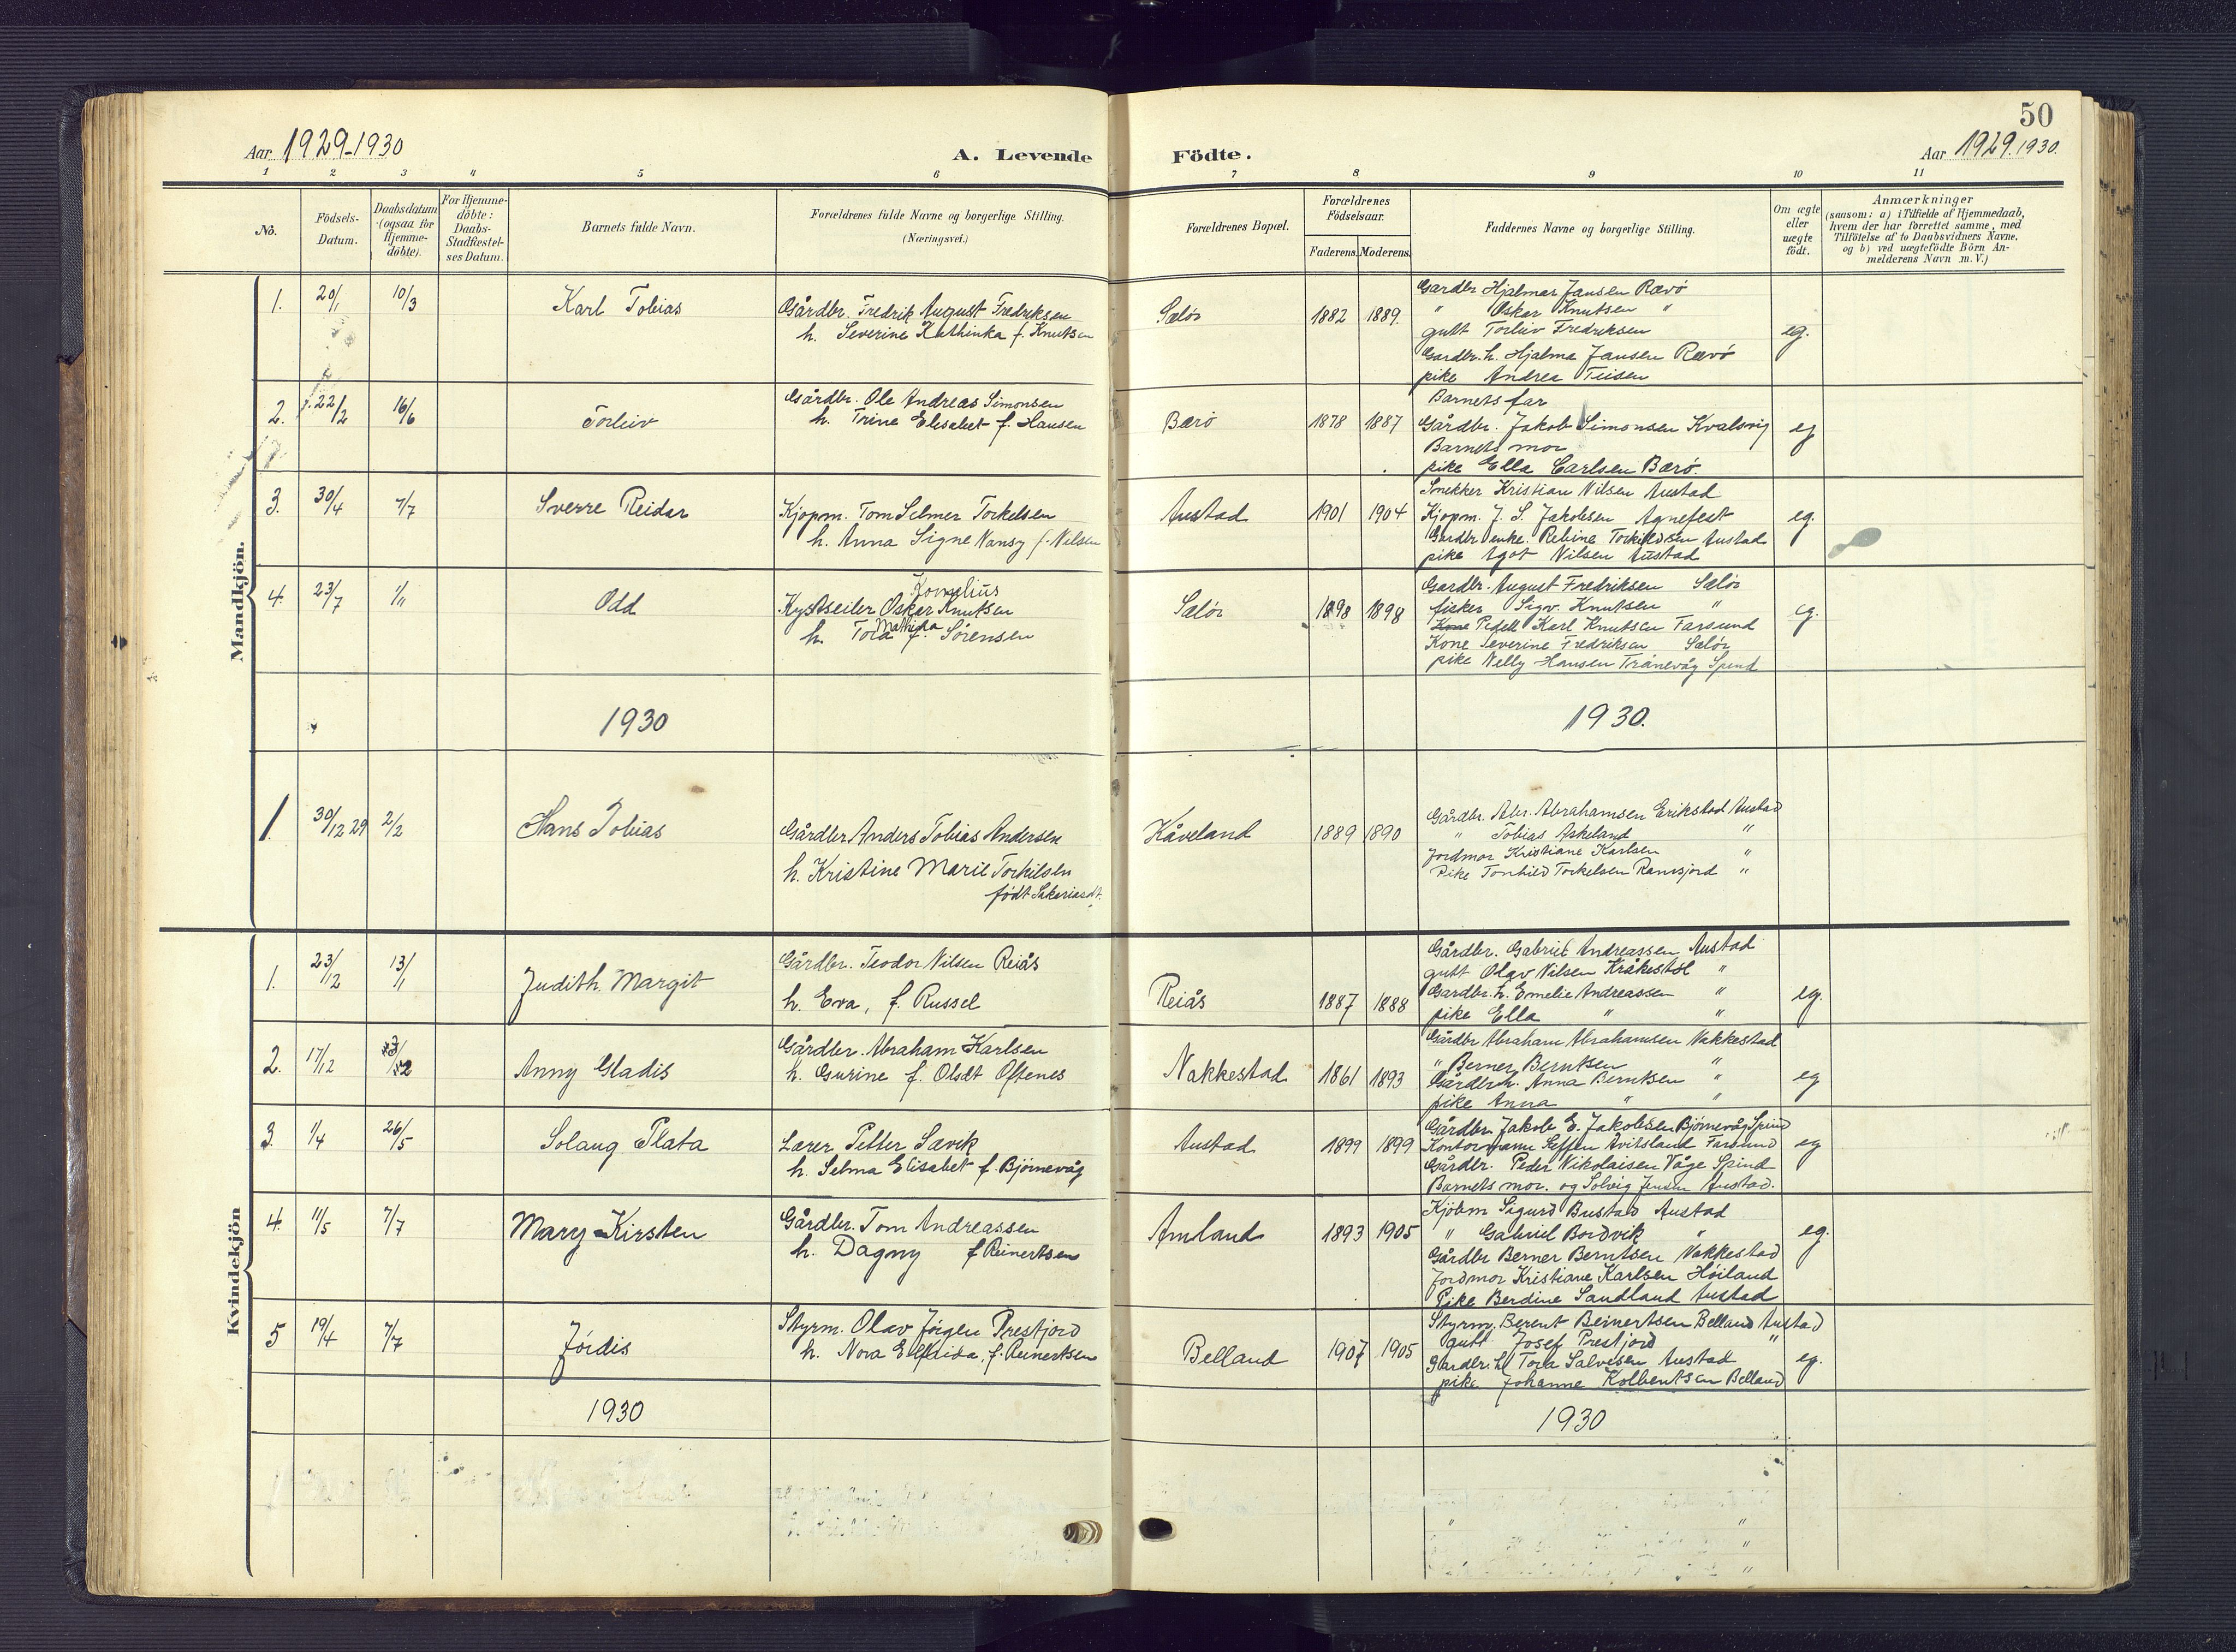 50
Aar 1929-1930
A. Levende Födte.
Aar 1929.1930.
1 2 3 4 5 6 7 8 9 10 11
No.
Födsels-
Datum.
Daabsdatum
(ogsaa for
Hjemme-
döbte).
For Hjemme-
döbte:
Daabs-
Stadfæstel-
ses Datum.
Barnets fulde Navn.
Forældrenes fulde Navne og borgerlige Stilling.
(Næringsvei.)
Forældrenes Bopæl.
Forældrenes
Födselsaar.
Faderens. Moderens.
Faddernes Navne og borgerlige Stilling.
Om ægte
eller
uægte
födt.
Anmærkninger
(saasom: a) i Tilfælde af Hjemmedaab,
hvem der har forrettet samme, med
Tilföielse af to Daabsvidners Navne,
og b) ved uægtefödte Börn An-
melderens Navn m.V.)
Mandkjön.
1. 20/1 10/3 Karl Tobias
Gårdbr. Fredrik August Fredriksen
h. Severine Kathinka f. Knutsen
Sælör 1882 1889.
Gardbr Hjalmar Jansen Rævö
" Oskar Knutsen "
gutt Torleiv Fredriksen
Gardbr. h. Hjalma Jansen Rævö
pike Andrea Tiisen
eg.
2. 22/2 16/6 Torleiv
Gårdbr. Ole Andreas Simonsen
h. Trine Elisabet f. Hansen
Bærö 1878 1887
Barnets far
Gårdbr. Jakob Simonsen Kvalsvig
Barnets mor
pike Ella Carlsen Bærö.
eg
3. 30/4 7/7 Sverre Reidar
Kjopm. Tom Selmer Torkelsen
h. Anna Signe Nansy f. Nilsen
Austad 1901 1904
Snekker Kristian Nilsen Austad
Kjopm. J. S. Jakobsen Agnefest
Gardbr enke. Rebine Torkildsen Austad
pike Agot Nilsen Austad
eg.
4. 23/7 1/11 Odd
Kornelius
Kystseiler Oskar Knutsen
Mathida
h. Tora f. Sörensen
Sælör 1898 1898
Gardbr. August Fredriksen Sælör
fisker Sigv. Knutsen "
Kone Pedell Karl Knutsen Farsund
Kone Severine Fredriksen Sælör
pike Nelly Hansen Tránevåg Spind
eg.
1930 1930.
1. 30/12 29 2/2 Hans Tobias
Gårdbr Anders Tobias Andersen
h. Kristine Marie Torkilsen
født Sakariasdt.
Kåveland 1889 1890
Gårdbr. Abr. Abrahamsen Erikstad Austad
" Tobias Askeland "
Jordmor Kristiane Karlsen "
Pike Tonhild Torkelsen Ramsjord "
Kvindekjön
1. 23/12 13/1 Judith Margit
Gårdbr. Teodor Nilsen Reiås
h. Eva, f. Russel
Reiås 1887 1888
Gårdbr. Gabriel Andreassen Austad
gutt Olav Nilsen Kråkestöl "
Gardbr. h. Emelie Andreassen "
pike Ella " "
eg.
2. 17/12 Anny Gladis
Gårdbr. Abraham Karlsen
h. Gurine f. Olsdt Oftenes
Nakkestad 1861 1893
Gårdbr Abraham Abrahamsen Nakkestad
" Berner Berntsen "
Gårdbr h. Anna Berntsen "
pike Anna " "
eg
3. 1/4 26/5 Solaug Plata
Lærer Petter Sævik
h. Selma Elisabet f. Björnevåg
Austad 1899 1899
Gårdbr Jakob E. Jakobsen Björnevåg Spind
Kontormann Steffen Avitsland Farsund
Gårdbr. Peder Nikolaisen Våge Spind
Barnets mor. og Solvig Jensen Austad.
eg
4. 11/5 7/7 Mary-Kirsten
Gårdbr. Tom Andreassen
h. Dagny f Reinertsen
Amland 1893 1905
Kjöbm Sigurd Bustad Austad
" Gabriel Bordvik "
Gårdbr Berner Berntsen Nakkestad
Jordmor Kristiane Karlsen Höiland
Pike Berdine Sandland Austad
eg.
5 19/4 7/7 Jördis
Styrm. Olav Jörgen Prestjord
h. Nora Elfrida, f. Reinertsen
Belland 1907 1905
Styrm. Berent Reinertsen Belland Austad
gutt Josef Prestjord "
Gardbr. h. Tora Salvesen Austad
pike Johanne Kolbentsen Belland
eg.
1930 1930